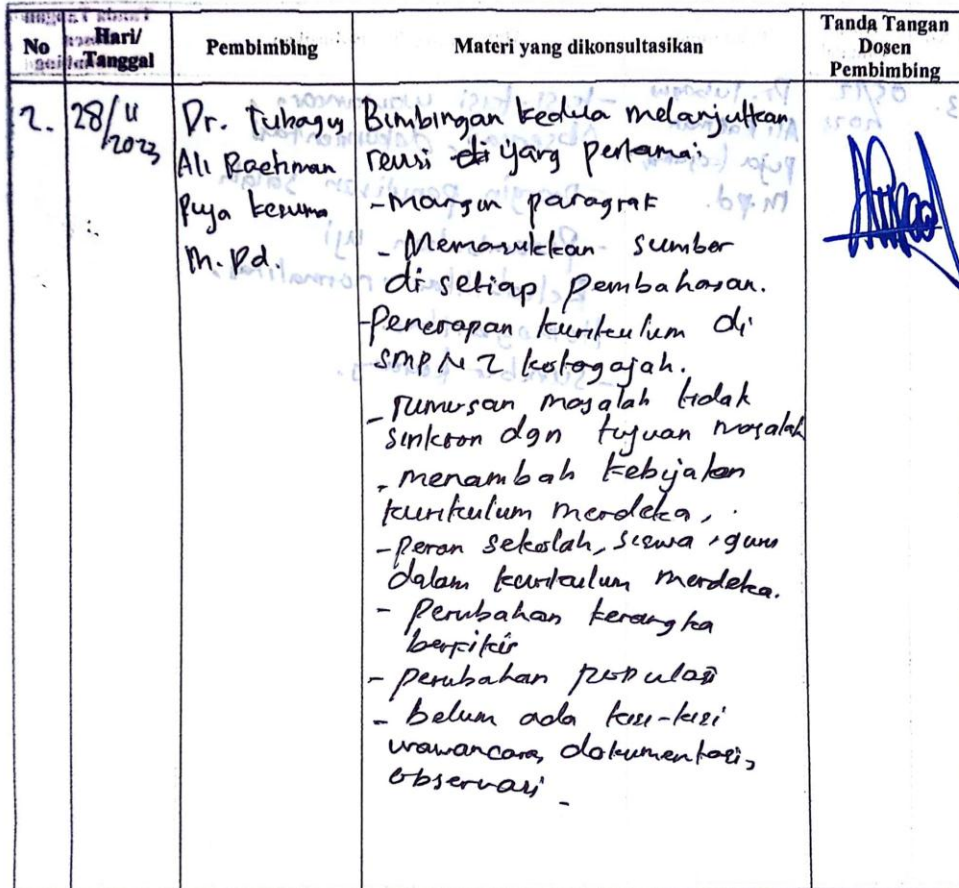 No
Hari/
Tanggal
Pembimbing
Materi yang dikonsultasikan
Tanda Tangan
Dosen
Pembimbing
2.
28/11
2023
Dr. Tubagus
Ali Rachman
Puja Kesuma
M.Pd.
Bimbingan kedua melanjutkan
revisi di yang pertama:
- Margin paragraf
- Memasukkan sumber
di setiap pembahasan.
- Penerapan kurikulum di
SMPN 2 kotagajah.
- rumusan masalah tidak
sinkron dgn tujuan masalah
- menambah kebijakan
kurikulum merdeka,
- peran sekolah, siswa, guru
dalam kurikulum merdeka.
- perubahan kerangka
berfikir
- perubahan populasi
- belum ada kisi-kisi
wawancara, dokumentasi,
observasi